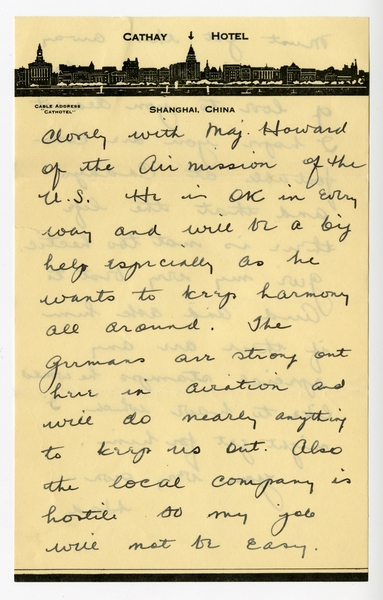 CATHAY HOTEL
CABLE ADDRESS
"CATHOTEL"
SHANGHAI, CHINA
closely with Maj. Howard
of the Air mission of the
U.S. He is OK in every
way and will be a big
help especially as he
wants to keep harmony
all around. The
germans are strong out
here in aviation and
will do nearly anything
to keep us out. Also
the local company is
hostile so my job
will not be easy.